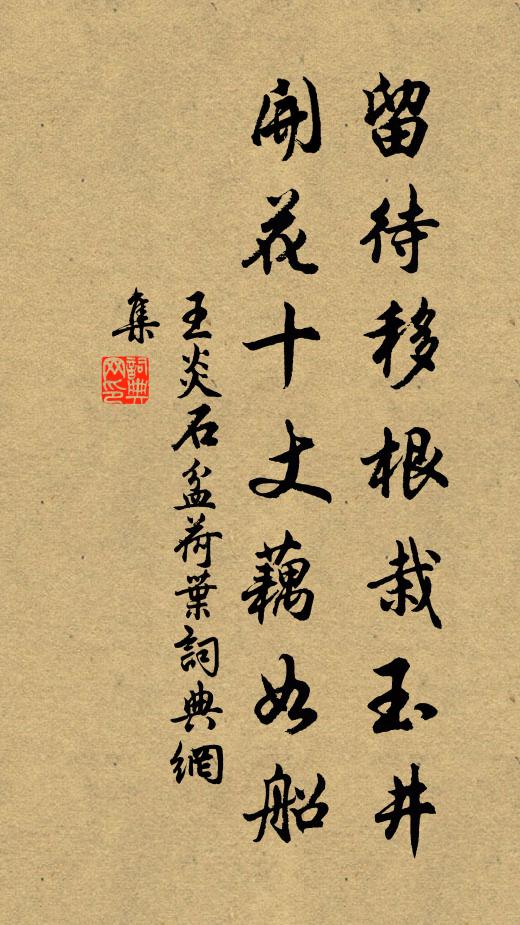 留待移根栽玉井
開花十丈藕如船
王炎石盆荷葉詞典網
集
詞典網印